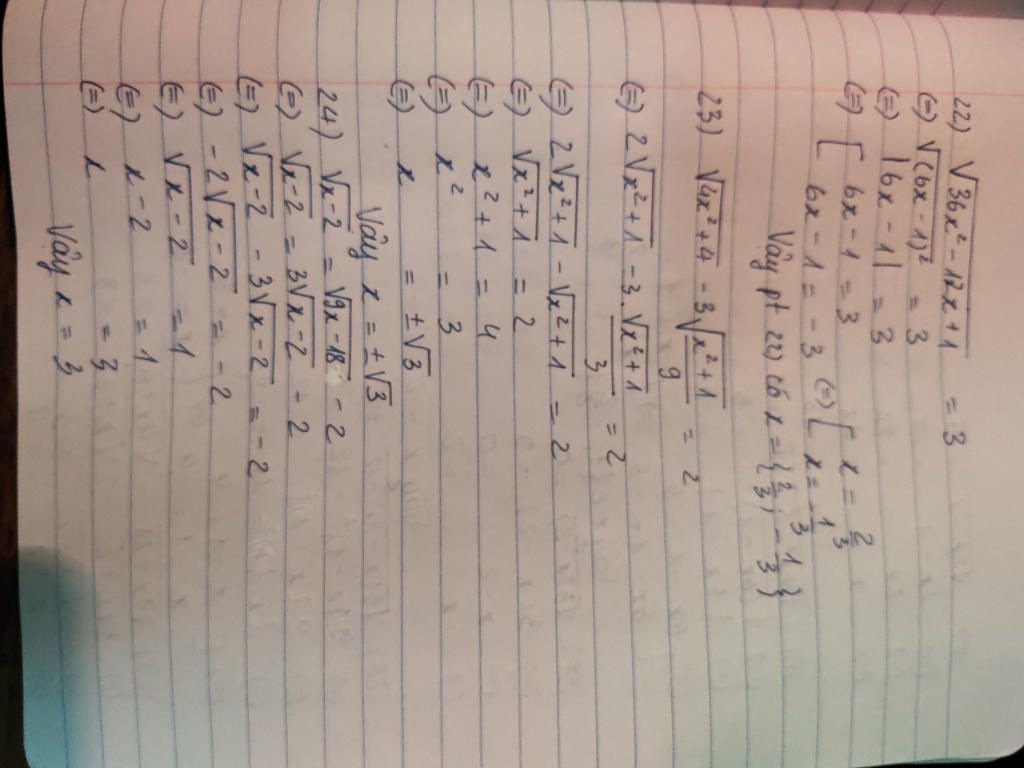 22) √(36x² - 12x + 1) = 3
(=) √(6x - 1)² = 3
(=) |6x - 1| = 3
(=) [ 6x - 1 = 3
6x - 1 = - 3 (=) [ x = 2/3
x = 1/3
Vậy pt 22) có x = {2/3; -1/3}
23) √(4x² + 4) - 3√((x² + 1)/9) = 2
(=) 2√(x² + 1) - 3.√(x² + 1)/3 = 2
(=) 2√(x² + 1) - √(x² + 1) = 2
(=) √(x² + 1) = 2
(=) x² + 1 = 4
(=) x² = 3
(=) x = ±√3
Vậy x = ±√3
24) √(x - 2) = √(9x - 18) - 2
(=) √(x - 2) = 3√(x - 2) - 2
(=) √(x - 2) - 3√(x - 2) = - 2
(=) - 2√(x - 2) = - 2
(=) √(x - 2) = 1
(=) x - 2 = 1
(=) x = 3
Vậy x = 3